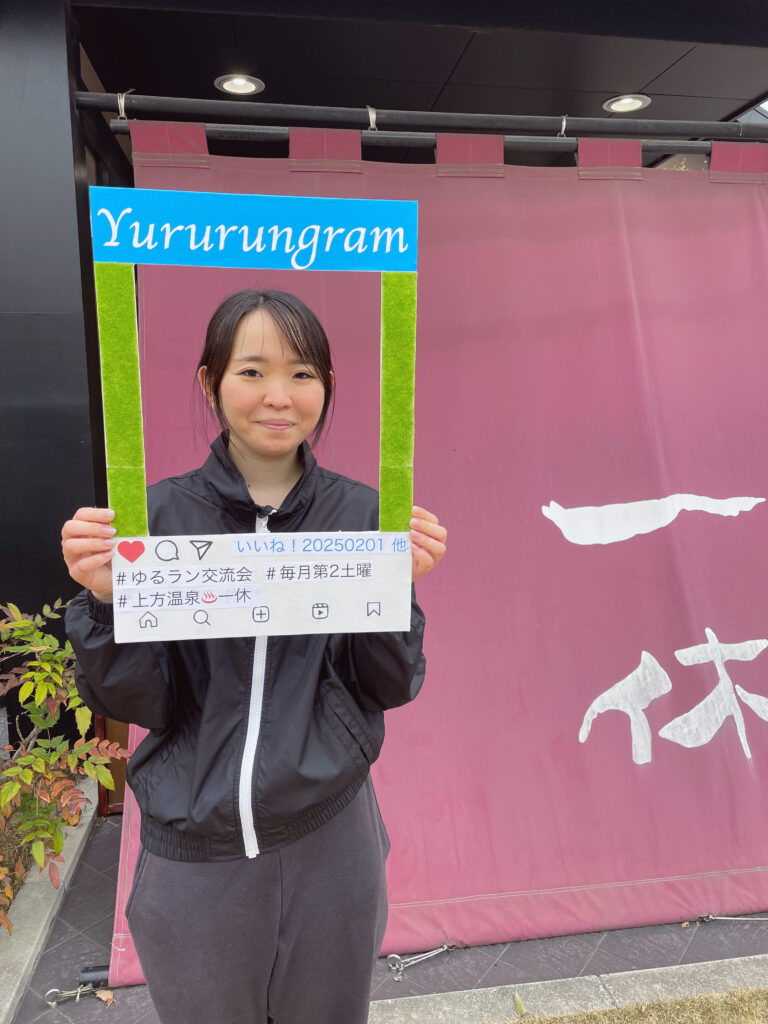 Yururungram
いいね！20250201 他
#ゆるラン交流会 #毎月第2土曜
#上方温泉♨一休
一
休